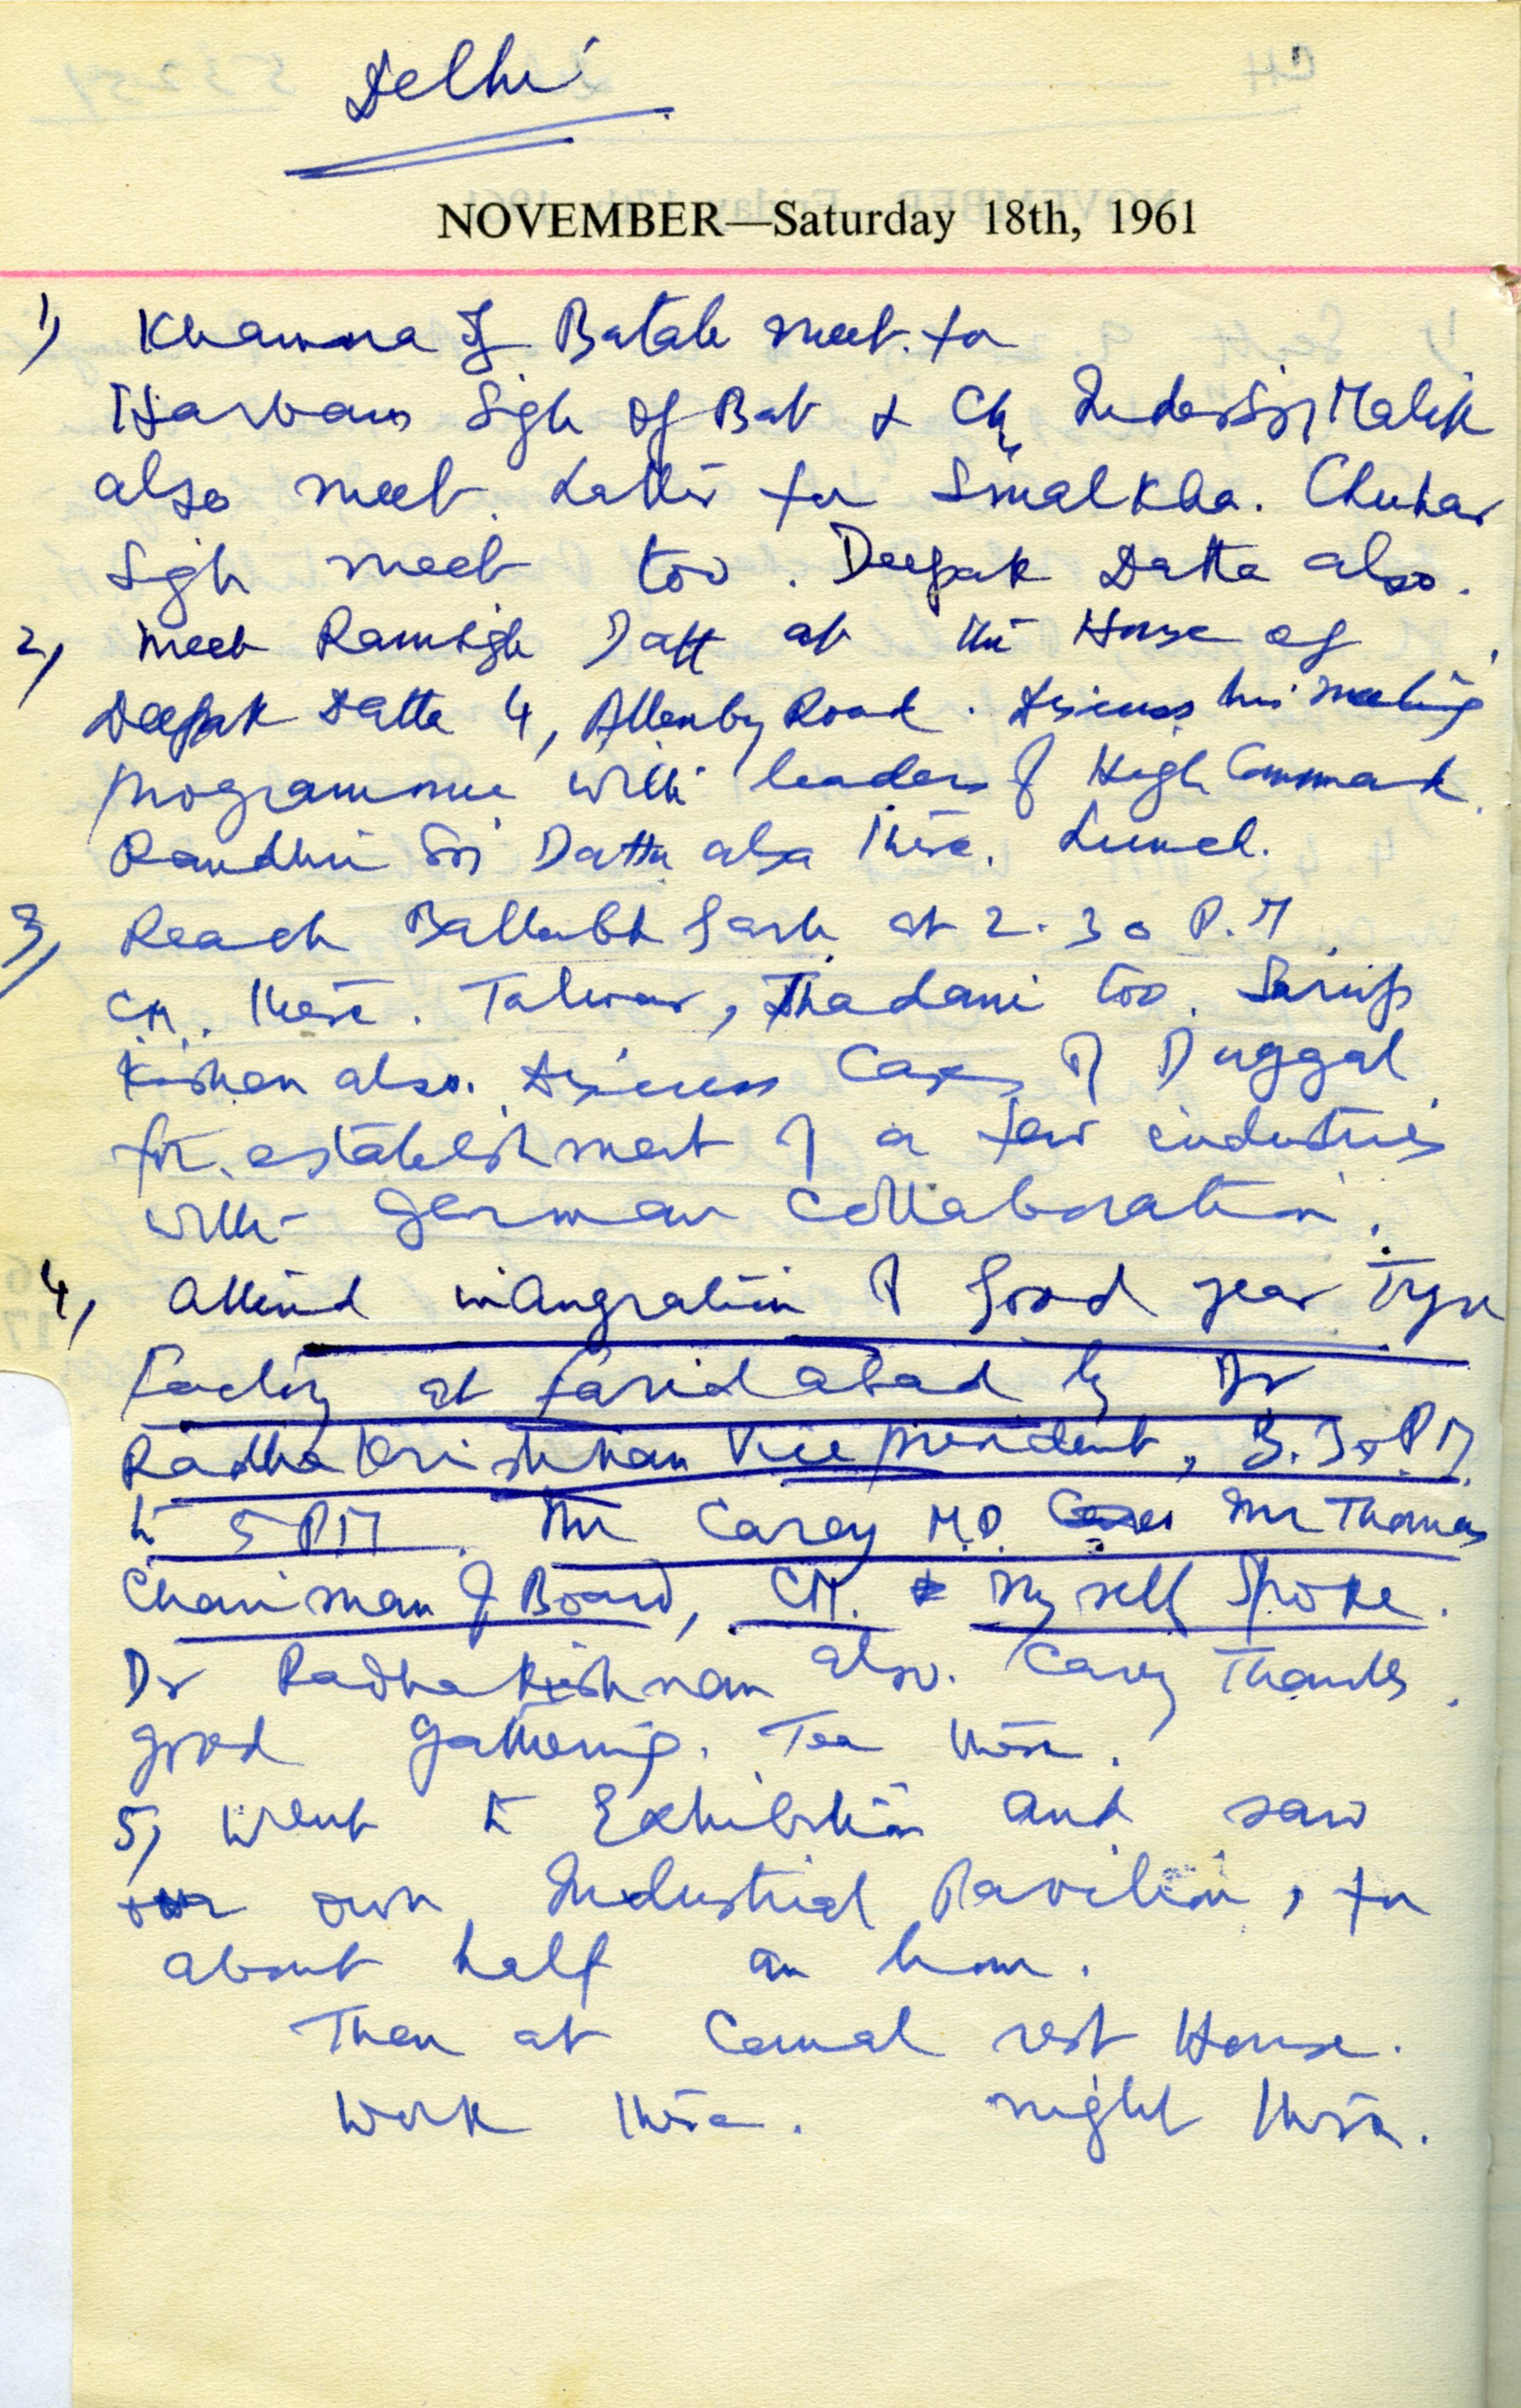 Delhi
NOVEMBER—Saturday 18th, 1961
1) Khanna of Batala meet. for
Harbans Sigh of Bat & Ch. Inder Malik
also meet. Latter for Smalkha. Chuhar
Sigh meet too. Deepak Datta also.
2) Meet Ramsigh Datt at the House of
Deepak Datta 4, Allenby Road. Discuss his meeting
programme with leaders of High Command.
Randhir Datta also there. Lunch.
3) Reach Ballabh Garh at 2.30 P.M.
CM. there. Talwar, Thadani too. Sarup
Kishen also. Discuss Case of Duggal
for establishment of a few industries
with German collaboration.
4) Attend inaugration of Good year Tyre
Factory at Faridabad by Dr
Radha Krishnan Vice president, 3.30 P.M.
to 5 PM. Mr Carey M.D. Mr Thomas
Chairman of Board, CM. & Myself spoke.
Dr Radhakrishnan also. Carey Thanks.
Good gathering. Tea there.
5) Went to Exhibition and saw
our own Industrial Pavilion, for
about half an hour.
Then at Canal rest House.
Work there. night there.